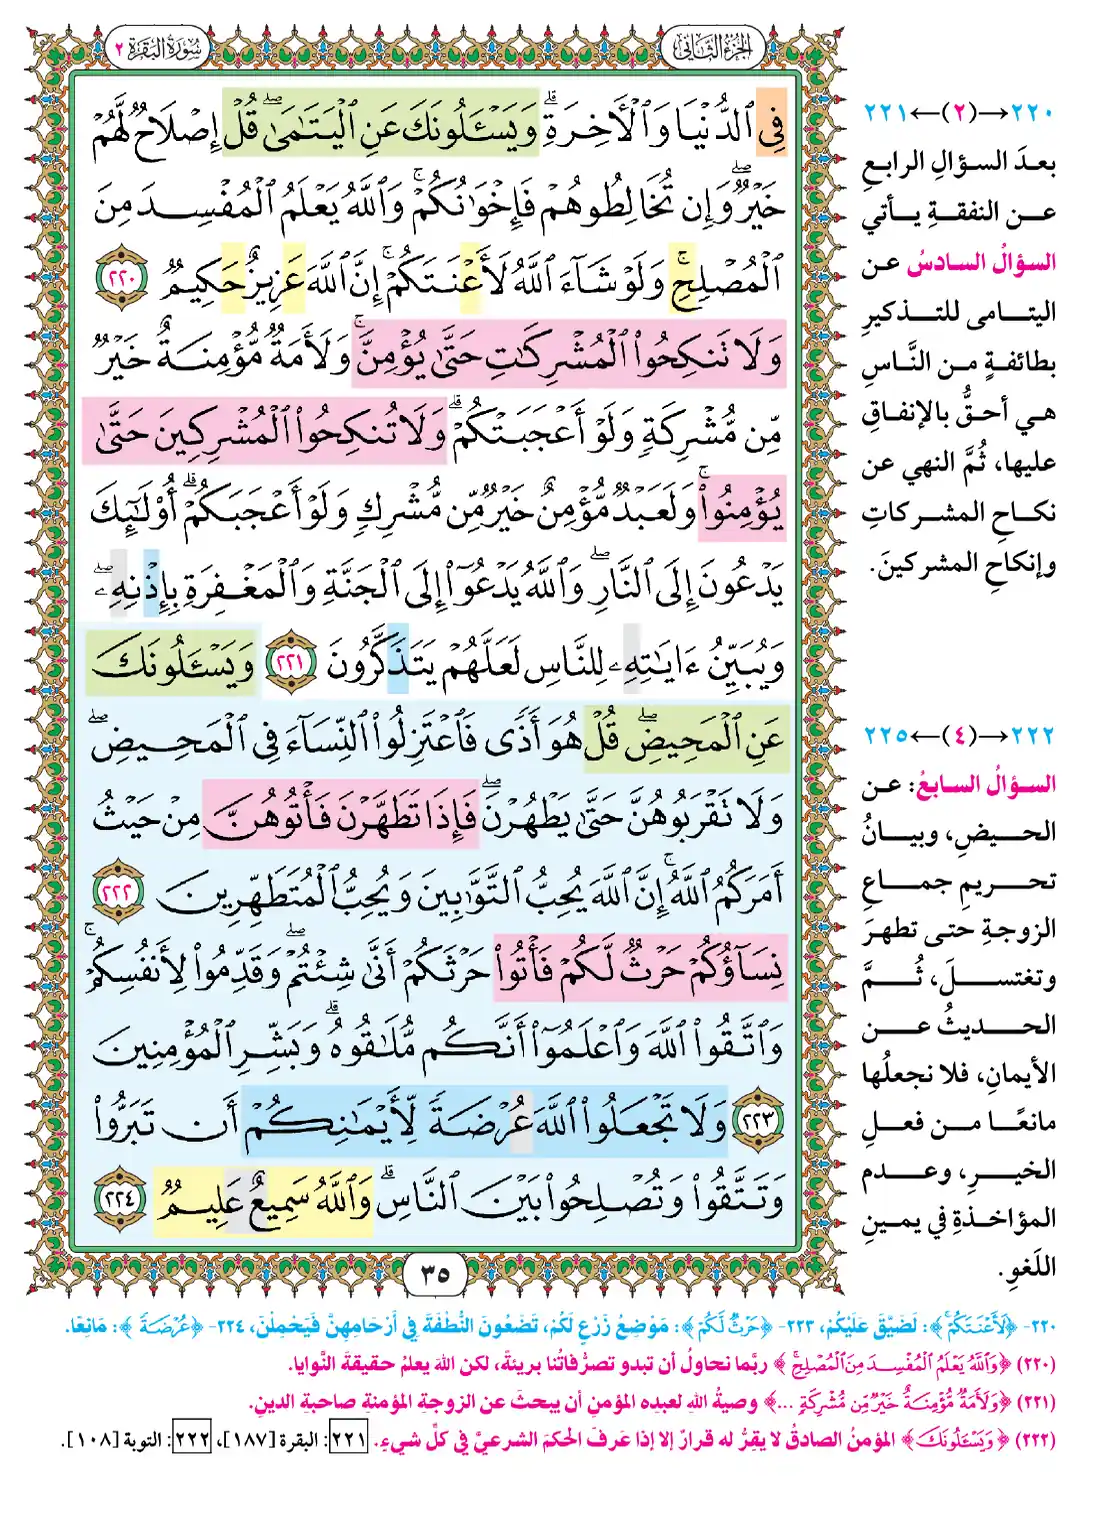 الجزء الثاني
سورة البقرة ٢
فِي ٱلدُّنۡيَا وَٱلۡأٓخِرَةِۗ وَيَسۡـَٔلُونَكَ عَنِ ٱلۡيَتَٰمَىٰۖ قُلۡ إِصۡلَاحٞ لَّهُمۡ
خَيۡرٞۖ وَإِن تُخَالِطُوهُمۡ فَإِخۡوَٰنُكُمۡۚ وَٱللَّهُ يَعۡلَمُ ٱلۡمُفۡسِدَ مِنَ
ٱلۡمُصۡلِحِۚ وَلَوۡ شَآءَ ٱللَّهُ لَأَعۡنَتَكُمۡۚ إِنَّ ٱللَّهَ عَزِيزٌ حَكِيمٞ ٢٢٠
وَلَا تَنكِحُواْ ٱلۡمُشۡرِكَٰتِ حَتَّىٰ يُؤۡمِنَّۚ وَلَأَمَةٞ مُّؤۡمِنَةٌ خَيۡرٞ
مِّن مُّشۡرِكَةٖ وَلَوۡ أَعۡجَبَتۡكُمۡۗ وَلَا تُنكِحُواْ ٱلۡمُشۡرِكِينَ حَتَّىٰ
يُؤۡمِنُواْۚ وَلَعَبۡدٞ مُّؤۡمِنٌ خَيۡرٞ مِّن مُّشۡرِكٖ وَلَوۡ أَعۡجَبَكُمۡۗ أُوْلَٰٓئِكَ
يَدۡعُونَ إِلَى ٱلنَّارِۖ وَٱللَّهُ يَدۡعُوٓاْ إِلَى ٱلۡجَنَّةِ وَٱلۡمَغۡفِرَةِ بِإِذۡنِهِۦۖ
وَيُبَيِّنُ ءَايَٰتِهِۦ لِلنَّاسِ لَعَلَّهُمۡ يَتَذَكَّرُونَ ٢٢١ وَيَسۡـَٔلُونَكَ
عَنِ ٱلۡمَحِيضِۖ قُلۡ هُوَ أَذٗى فَٱعۡتَزِلُواْ ٱلنِّسَآءَ فِي ٱلۡمَحِيضِۖ
وَلَا تَقۡرَبُوهُنَّ حَتَّىٰ يَطۡهُرۡنَۖ فَإِذَا تَطَهَّرۡنَ فَأۡتُوهُنَّ مِنۡ حَيۡثُ
أَمَرَكُمُ ٱللَّهُۚ إِنَّ ٱللَّهَ يُحِبُّ ٱلتَّوَّٰبِينَ وَيُحِبُّ ٱلۡمُتَطَهِّرِينَ ٢٢٢
نِسَآؤُكُمۡ حَرۡثٞ لَّكُمۡ فَأۡتُواْ حَرۡثَكُمۡ أَنَّىٰ شِئۡتُمۡۖ وَقَدِّمُواْ لِأَنفُسِكُمۡۚ
وَٱتَّقُواْ ٱللَّهَ وَٱعۡلَمُوٓاْ أَنَّكُم مُّلَٰقُوهُۗ وَبَشِّرِ ٱلۡمُؤۡمِنِينَ
٢٢٣ وَلَا تَجۡعَلُواْ ٱللَّهَ عُرۡضَةٗ لِّأَيۡمَٰنِكُمۡ أَن تَبَرُّواْ
وَتَتَّقُواْ وَتُصۡلِحُواْ بَيۡنَ ٱلنَّاسِۚ وَٱللَّهُ سَمِيعٌ عَلِيمٞ ٢٢٤
٣٥
٢٢٠→(٢)←٢٢١
بعدَ السؤالِ الرابعِ
عن النفقةِ يأتي
السؤالُ السادسُ عن
اليتامى للتذكيرِ
بطائفةٍ من النَّاسِ
هي أحقُّ بالإنفاقِ
عليها، ثُمَّ النهي عن
نكاحِ المشركاتِ
وإنكاحِ المشركينَ.
٢٢٢→(٤)←٢٢٥
السؤالُ السابعُ: عن
الحيضِ، وبيانُ
تحريمِ جماعِ
الزوجةِ حتى تطهرَ
وتغتسلَ، ثُمَّ
الحديثُ عن
الأيمانِ، فلا نجعلُها
مانعًا من فعلِ
الخيرِ، وعدم
المؤاخذةِ في يمينِ
اللَغوِ.
٢٢٠- ﴿لَأَعْنَتَكُمْ﴾: لَضَيَّقَ عَلَيْكُمْ، ٢٢٣- ﴿حَرْثٌ لَّكُمْ﴾: مَوْضِعُ زَرْعٍ لَكُمْ، تَضَعُونَ النُّطْفَةَ فِي أَرْحَامِهِنَّ فَيَحْمِلْنَ، ٢٢٤- ﴿عُرْضَةً﴾: مَانِعًا.
(٢٢٠) ﴿وَاللَّهُ يَعْلَمُ الْمُفْسِدَ مِنَ الْمُصْلِحِ﴾ ربَّما نحاولُ أن تبدو تصرُّفاتُنا بريئةً، لكن اللهَ يعلمُ حقيقةَ النَّوايا.
(٢٢١) ﴿وَلَأَمَةٌ مُّؤْمِنَةٌ خَيْرٌ مِّن مُّشْرِكَةٍ ...﴾ وصيةُ اللهِ لعبده المؤمنِ أن يبحثَ عن الزوجةِ المؤمنةِ صاحبةِ الدينِ.
(٢٢٢) ﴿وَيَسْأَلُونَكَ﴾ المؤمنُ الصادقُ لا يقِرُّ له قرارٌ إلا إذا عَرفَ الحكمَ الشرعيَّ في كلِّ شيءٍ. ٢٢١: البقرة [١٨٧]، ٢٢٢: التوبة [١٠٨].